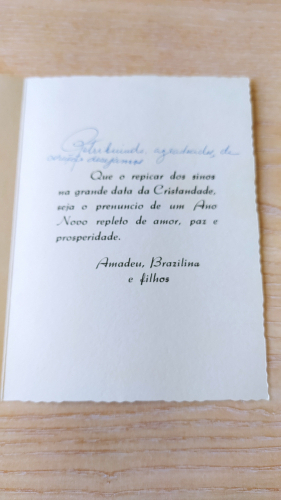 Retribuindo, agradecidos, de
coração desejamos
Que o repicar dos sinos
na grande data da Cristandade,
seja o prenuncio de um Ano
Novo repleto de amor, paz e
prosperidade.
Amadeu, Brazilina
e filhos